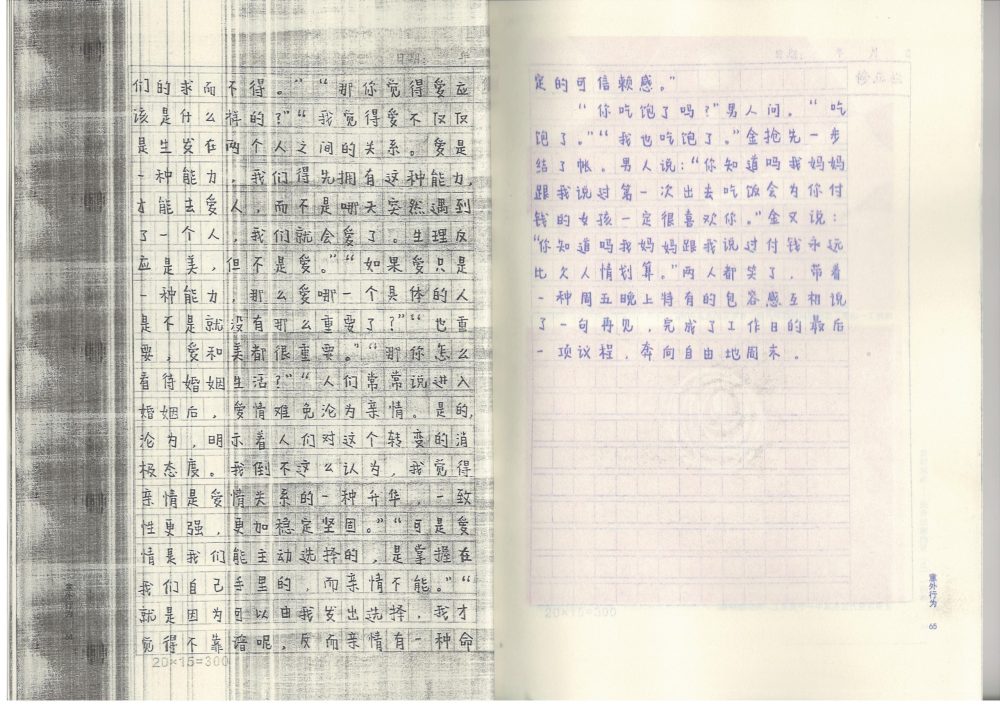 们的求而不得。”“那你觉得爱应
该是什么样的？”“我觉得爱不仅仅
是生发在两个人之间的关系。爱是
一种能力，我们得先拥有这种能力，
才能去爱人，而不是哪天突然遇到
了一个人，我们就会爱了。生理反
应是美，但不是爱。”“如果爱只是
一种能力，那么爱哪一个具体的人
是不是就没有那么重要了？”“也重
要，爱和美都很重要。”“那你怎么
看待婚姻生活？”“人们常常说进入
婚姻后，爱情难免沦为亲情。是的，
沦为，明示着人们对这个转变的消
极态度。我倒不这么认为，我觉得
亲情是爱情关系的一种升华，一致
性更强，更加稳定坚固。”“可是爱
情是我们能主动选择的，是掌握在
我们自己手里的，而亲情不能。”“
就是因为可以由我发出选择，我才
觉得不靠谱呢，反而亲情有一种命
20×15=300
意外行为
定的可信赖感。”
“你吃饱了吗？”男人问，“吃
饱了。”“我也吃饱了。”金抢先一步
结了帐。男人说：“你知道吗我妈妈
跟我说过第一次出去吃饭会为你付
钱的女孩一定很喜欢你。”金又说：
“你知道吗我妈妈跟我说过付钱永远
比欠人情划算。”两人都笑了，带着
一种周五晚上特有的包容感互相说
了一句再见，完成了工作日的最后
一项议程，奔向自由地周末。
20×15=300
意外行为
65